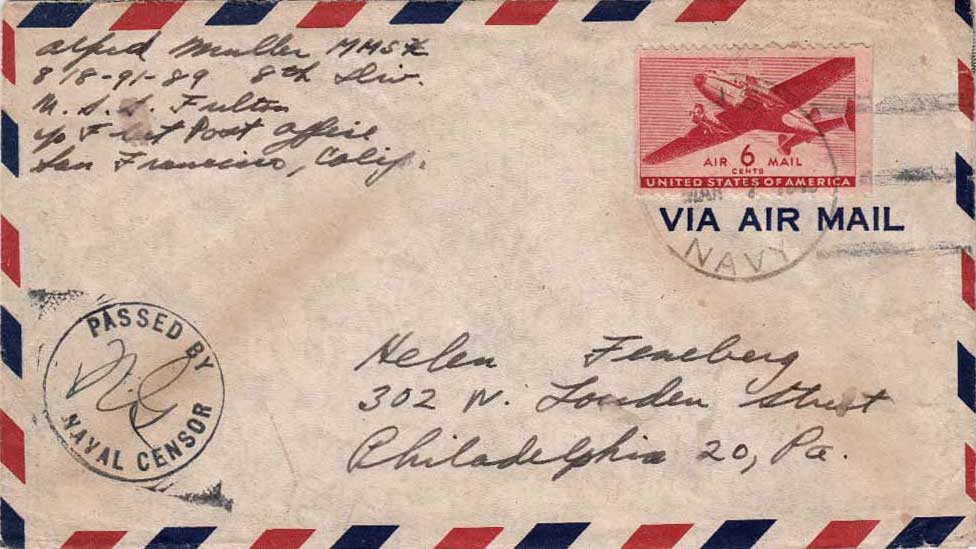 Alfred Muller MMS
818-91-89 8th Div.
U.S.S. Fulton
c/o Fleet Post Office
San Francisco, Calif.
AIR 6 MAIL
CENTS
UNITED STATES OF AMERICA
VIA AIR MAIL
MAR
NAVY
PASSED BY
NAVAL CENSOR
Helen Feneberg
302 W. Louden Street
Philadelphia 20, Pa.